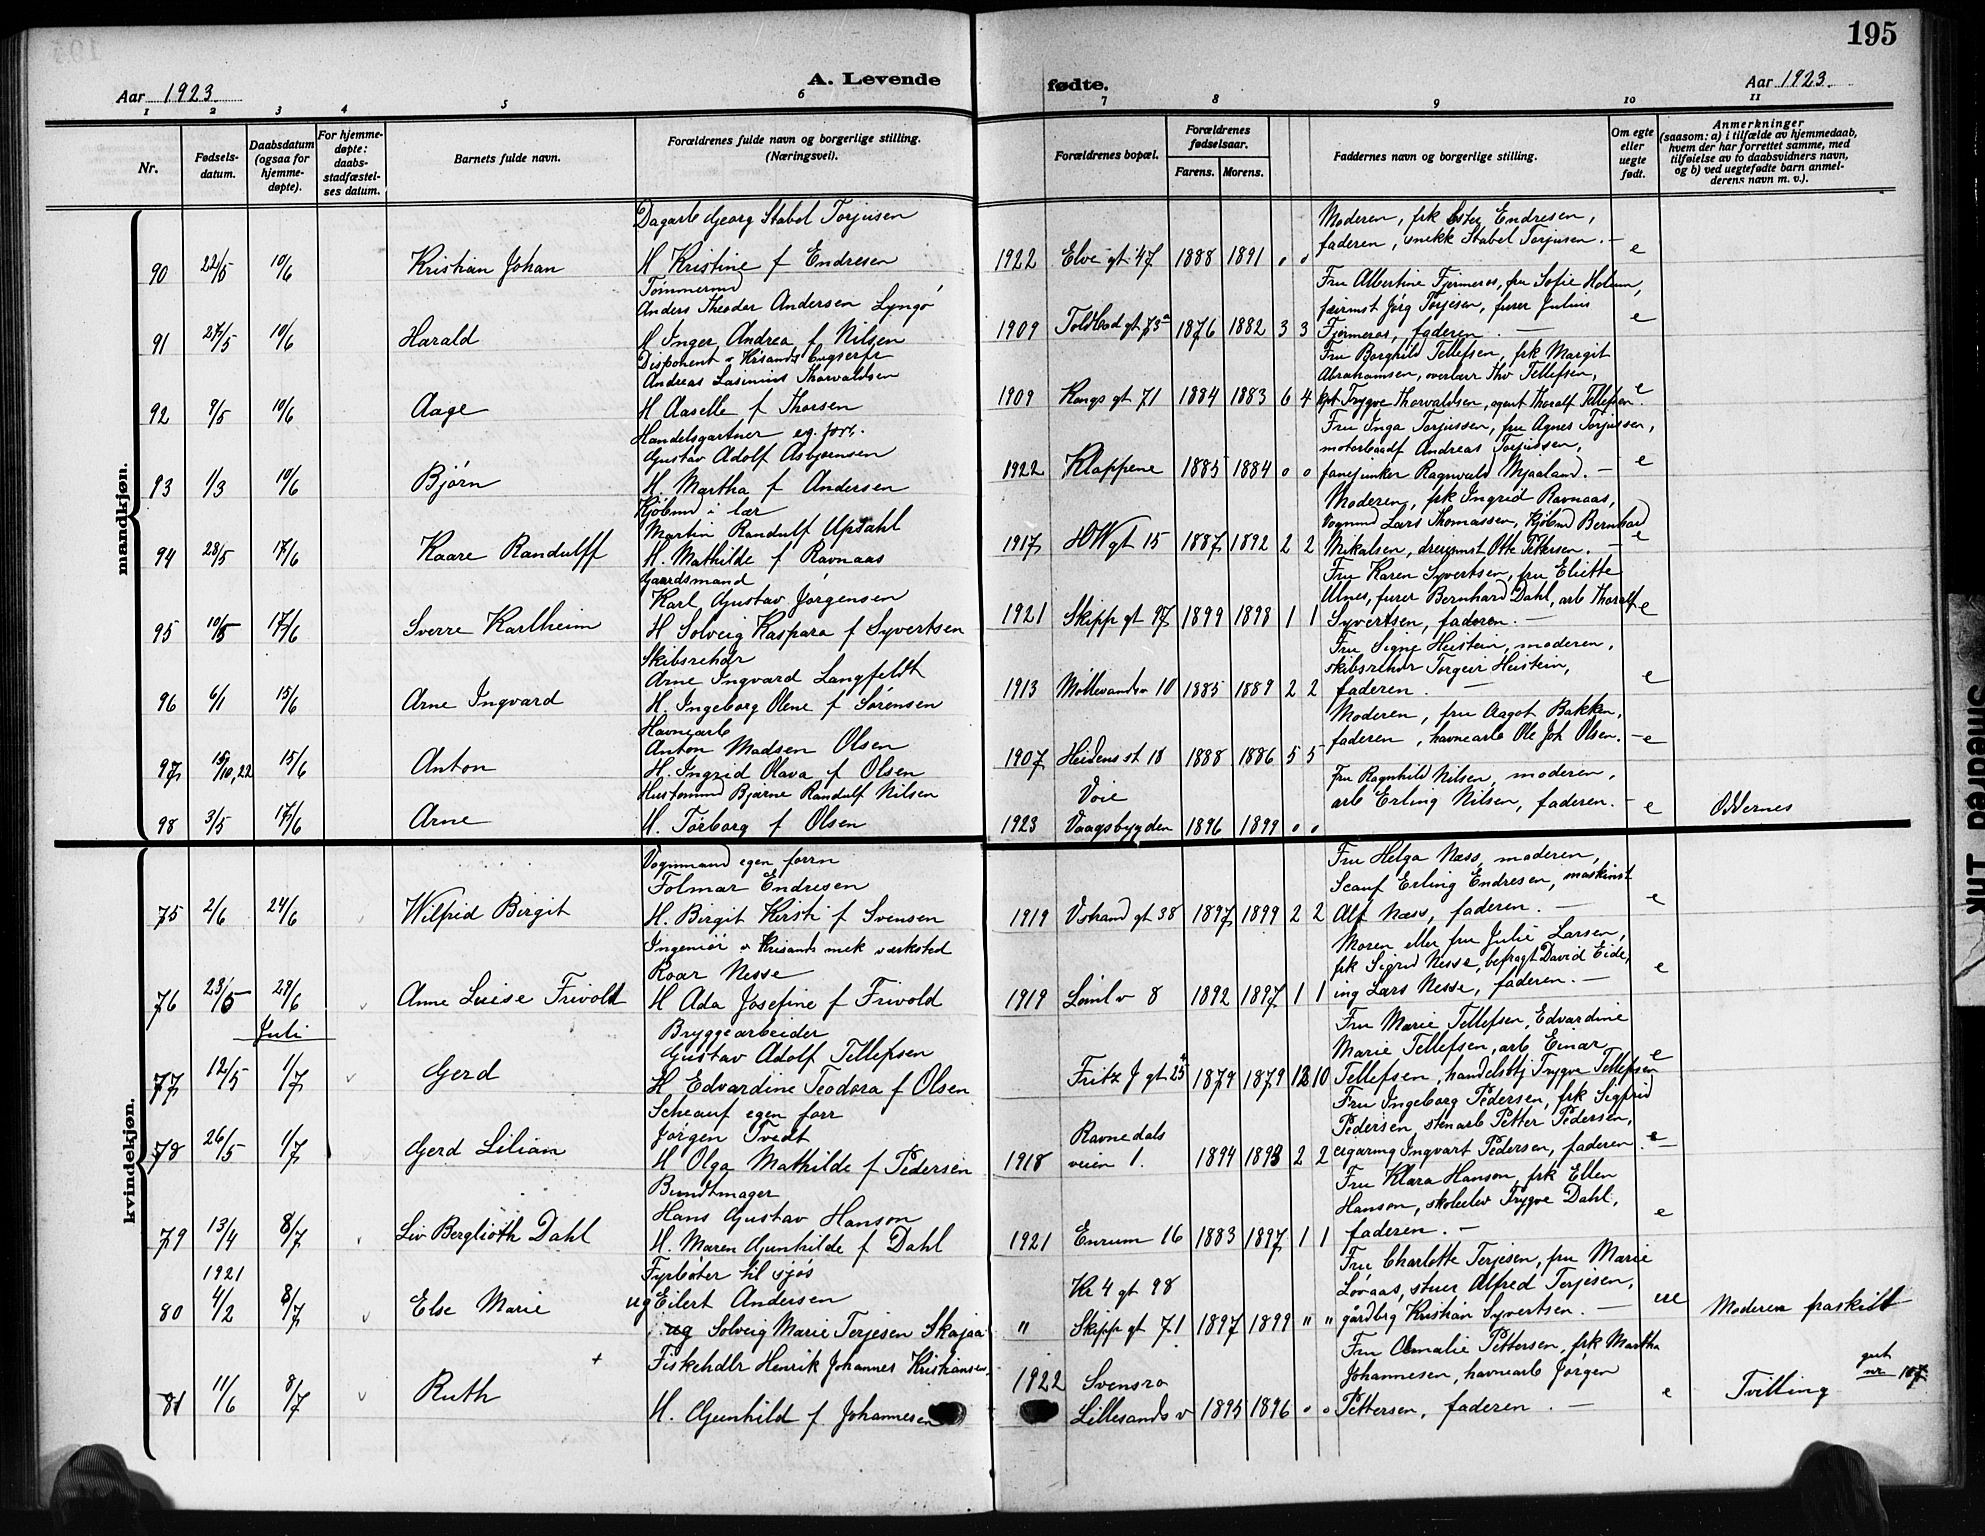 195
Aar 1923.
A. Levende fødte.
Aar 1923.
1 2 3 4 5 6 7 8 9 10 11
Nr.
Fødsels-
datum.
Daabsdatum
(ogsaa for
hjemme-
døpte).
For hjemme-
døpte:
daabs-
stadfæstel-
ses datum.
Barnets fulde navn.
Forældrenes fulde navn og borgerlige stilling.
(Næringsvei).
Forældrenes bopæl.
Forældrenes
fødselsaar.
Farens. Morens.
Faddernes navn og borgerlige stilling.
Om egte
eller
uegte
født.
Anmerkninger
(saasom: a) i tilfælde av hjemmedaab,
hvem der har forrettet samme, med
tilføielse av to daabsvidners navn,
og b) ved uegtefødte barn anmel-
derens navn m. v.).
mandkjøn.
Dagarb Georg Stabel Torjusen
Moderen, frk Ester Endresen,
faderen, snekk Stabel Torjusen. —
90 22/5 10/6 Kristian Johan H Kristine f Endresen 1922 Elve gt 47 1888 1891 0 0 e
Tømmermd
Anders Theodor Andersen Lyngö
Fru Albertine Fjermeros, fru Sofie Holum,
Jörg Torjesen, furer Julius
91 27/5 10/6 Harald H Inger Andrea f Nilsen 1909 Toldbod gt 73a 1876 1882 3 3 Fjermeros, faderen. — e
Disponent v Krisands Bugserfr
Andreas Lasinius Thorvaldsen
Fru Borghild Tellefsen, frk Margit
Abrahamsen, overlær Thv Tellefsen,
92 9/5 10/6 Aage H Aaselle f Thorsen 1909 Kongs gt 71 1884 1883 6 4 kpt Trygve Thorvaldsen, agent Thoralf Tellefsen. e
Handelsgartner eg. forr.
Gustav Adolf Asbjoensen
Fru Inga Torjussen, fru Agnes Torjussen,
motorbaadf Andreas Torjussen,
93 1/3 10/6 Bjørn H. Martha f Andersen 1922 Klappene 1885 1884 0 0 fanejunker Ragnvald Mjaaland. — e
Kjøbmd i lær
Martin Randulf Upsahl
Moderen, frk Ingrid Ravnaas,
Vognmd Lars Thomassen, Kjøbmd Bernhard
94 28/5 17/6 Kaare Randulff H. Mathilde f Ravnaas 1917 HW gt 15 1887 1892 2 2 Mikalsen, Otto Pettersen. — e
Gaardsmand
Karl Gustav Jørgensen
Fru Karen Syvertsen, fru Eliette
Ulnes, furer Bernhard Dahl, arb Thoralf
95 10/5 17/6 Sverre Karlheim H Solveig Kaspara f Syvertsen 1921 Skipp gt 97 1899 1898 1 1 Syvertsen, faderen. — e
Skibsrehdr
Arne Ingvard Langfeldt
Fru Signe Heistein, moderen,
skibsrehdr Torgeir Heistein,
96 6/1 15/6 Arne Ingvard H. Ingeborg Olene f Sørensen 1913 Møllevandsv 10 1885 1889 2 2 faderen. — e
Havnearb
Anton Madsen Olsen
Moderen, fru Aagot Bakken,
faderen, havnearb Ole Joh Olsen. —
97 15/10,22 15/6 Anton H. Ingrid Olava f Olsen 1907 Heidens st 18 1888 1886 5 5 e
Husformd Bjarne Randulf Nilsen
Voie
Fru Ragnhild Nilsen, moderen,
arb Erling Nilsen, faderen. —
98 3/5 17/6 Arne H. Torborg f Olsen 1923 Vaagsbygden 1896 1899 0 0 e Oddernes
kvindekjøn.
Vognmand egen forrn
Folmar Endresen
Fru Helga Næss, moderen,
Scauf Erling Endresen, maskinst
75 2/6 24/6 Wilfrid Birgit H. Birgit Kirsti f Svensen 1919 Vstrand gt 38 1897 1899 2 2 Alf Næss, faderen. — e
Ingeniør v Krisands mek værksted
Roar Nesse
Moren eller fru Julie Larsen,
frk Sigrid Nesse, befragt David Eide,
76 23/5 29/6 Anne Luise Frivold H Ada Josefine f Frivold 1919 Lømlv 8 1892 1897 1 1 ing Lars Nesse, faderen. — e
Juli
Bryggearbeider
Gustav Adolf Tellefsen
Fru Marie Tellefsen, Edvardine
Marie Tellefsen, arb Einar
77 12/5 1/7 Gerd H Edvardine Teodora f Olsen Fritz J gt 25a 1879 1879 12 10 Tellefsen, handelsbtj Trygve Tellefsen e
Scheauf egen forr
Jørgen Tvedt
Ravnedals
Fru Ingeborg Pedersen, frk Sigfrid
Pedersen stenarb Petter Pedersen,
78 26/5 1/7 Gerd Lilian H Olga Mathilde f Pedersen 1918 veien 1. 1894 1893 2 2 cigarmg Ingvart Pedersen, faderen. — e
Bundtmager
Hans Gustav Hanson
Fru Klara Hanson, frk Ellen
Hanson, skoleelev Trygve Dahl,
79 13/4 8/7 Liv Bergliöth Dahl H. Maren Gunhilde f Dahl 1921 Enrum 16 1883 1897 1 1 faderen. — e
1921
Fyrbøter til sjøs
ug Eilert Andersen
Kr 4 gt 98
Fru Charlotte Terjesen, fru Marie
Lövaas, stuer Alfred Terjesen,
80 4/2 8/7 Else Marie ug Solveig Marie Terjesen Skajaa " Skipp gt 71 1897 1899 " " gårdbrg Kristian Syvertsen. — ue Moderen fraskilt
+ Fiskehdlr Henrik Johannes Kristiansen
Svensro
Fru Amalie Pettersen, frk Martha
Johannesen, havnearb Jørgen
gut
nr 107
81 11/6 8/7 Ruth H. Gunhild f Johannesen 1922 Lillesands v 1895 1896 0 0 Pettersen, faderen. — e Tvilling